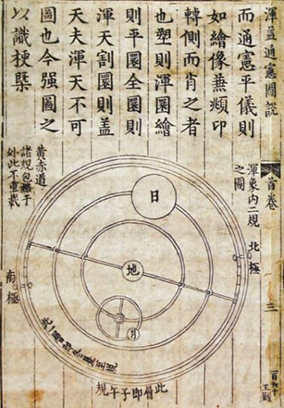 渾蓋通憲圖說
首卷
三
而通憲平儀則
如繪像兼頫印
轉側而肖之者
也塑則渾圜繪
則平圜全圜則
渾天割圜則蓋
天夫渾天不可
圖也今强圖之
以識梗槩
渾象內二規
之圖
北極
黃赤道
諸規包攝于
外此不重載
南極
日
地
月
此層即子午規